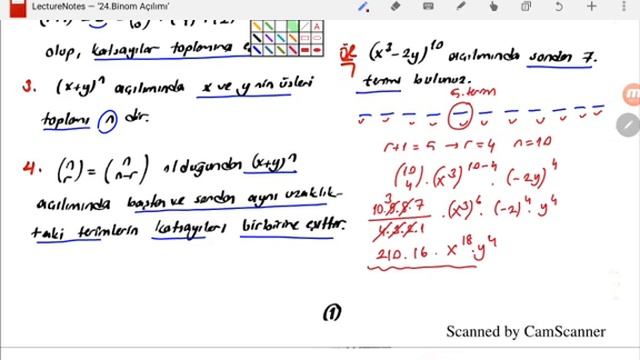 LectureNotes – '24.Binom Açılımı'
olup, katsayılar toplamına
3. (x+y)^n açılımında x ve y nin üsleri
toplamı n dir.
4. (n r) = (n n-r) olduğundan (x+y)^n
açılımında baştan ve sondan aynı uzaklık-
taki terimlerin katsayıları birbirine eşittir.
ÖR 7 (x³-2y)^10 açılımında sondan 7.
terimi bulunuz.
5. terim
r+1=5 → r=4 n=10
(10 4) · (x³)^10-4 · (-2y)^4
10·9·8·7 / 4·3·2·1 · (x³)^6 · (-2)^4 · y^4
210 · 16 · x^18 · y^4
(1)
Scanned by CamScanner